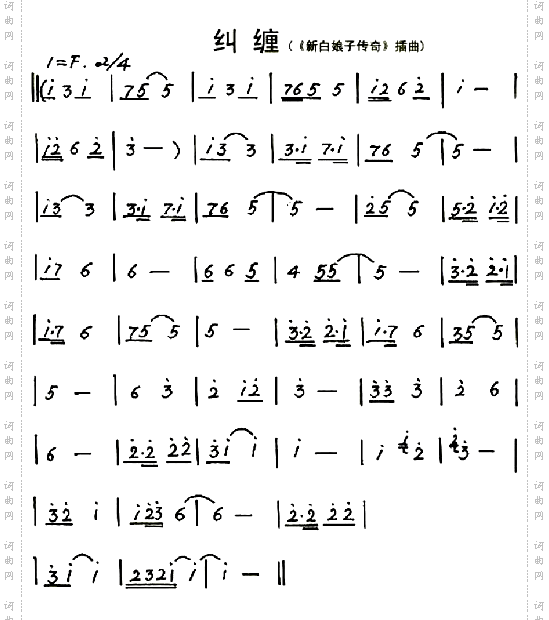 纠 缠 (《新白娘子传奇》插曲)
1=F. 2/4
‖(i 3 i | 75 5 | i 3 i | 765 5 | i2 6 2 | i — |
| i2 6 2 | 3 — ) | i3 3 | 3·i 7·i | 76 5 | 5 — |
| i3 3 | 3·i 7·i | 76 5 | 5 — | 25 5 | 5·2 i·2 |
| i7 6 | 6 — | 6 6 5 | 4 55 | 5 — | 3·2 2·1 |
| i·7 6 | 75 5 | 5 — | 3·2 2·i | i·7 6 | 35 5 |
| 5 — | 6 3 | 2 i2 | 3 — | 33 3 | 2 6 |
| 6 — | 2·2 22 | 3i i | i — | i 2 | 3 — |
| 32 i | i23 6 | 6 — | 2·2 22 |
| 3i i | 232i i | i — ‖
词曲网
词曲网
词曲网
词曲网
词曲网
词曲网
词曲网
词曲网
词曲网
词曲网